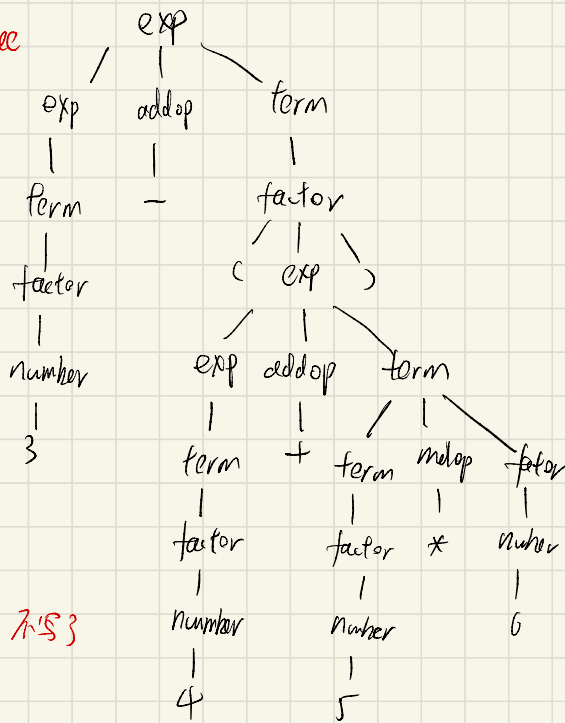 exp
exp addop term
term - factor
factor ( exp )
number exp addop term
3 term + term mulop fator
factor factor * nuher
不写了 nunmber nunber 6
4 5